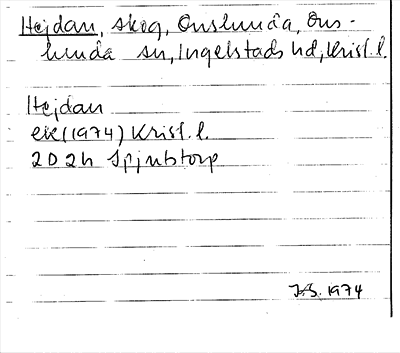 Hejdan, skog, Onslunda, Ons-
lunda sn, Ingelstads hd, Krist. l.
Hejdan
ek (1974) Krist. l.
2D2h Spjutstorp
J.S. 1974